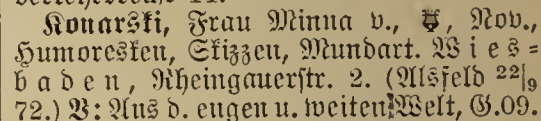 Konarski, Frau Minna v., Nov.,
Humoresken, Skizzen, Mundart. Wies=
baden, Rheingauerstr. 2. (Alsfeld 22/9
72.) V: Aus d. engen u. weiten Welt, G. 09.